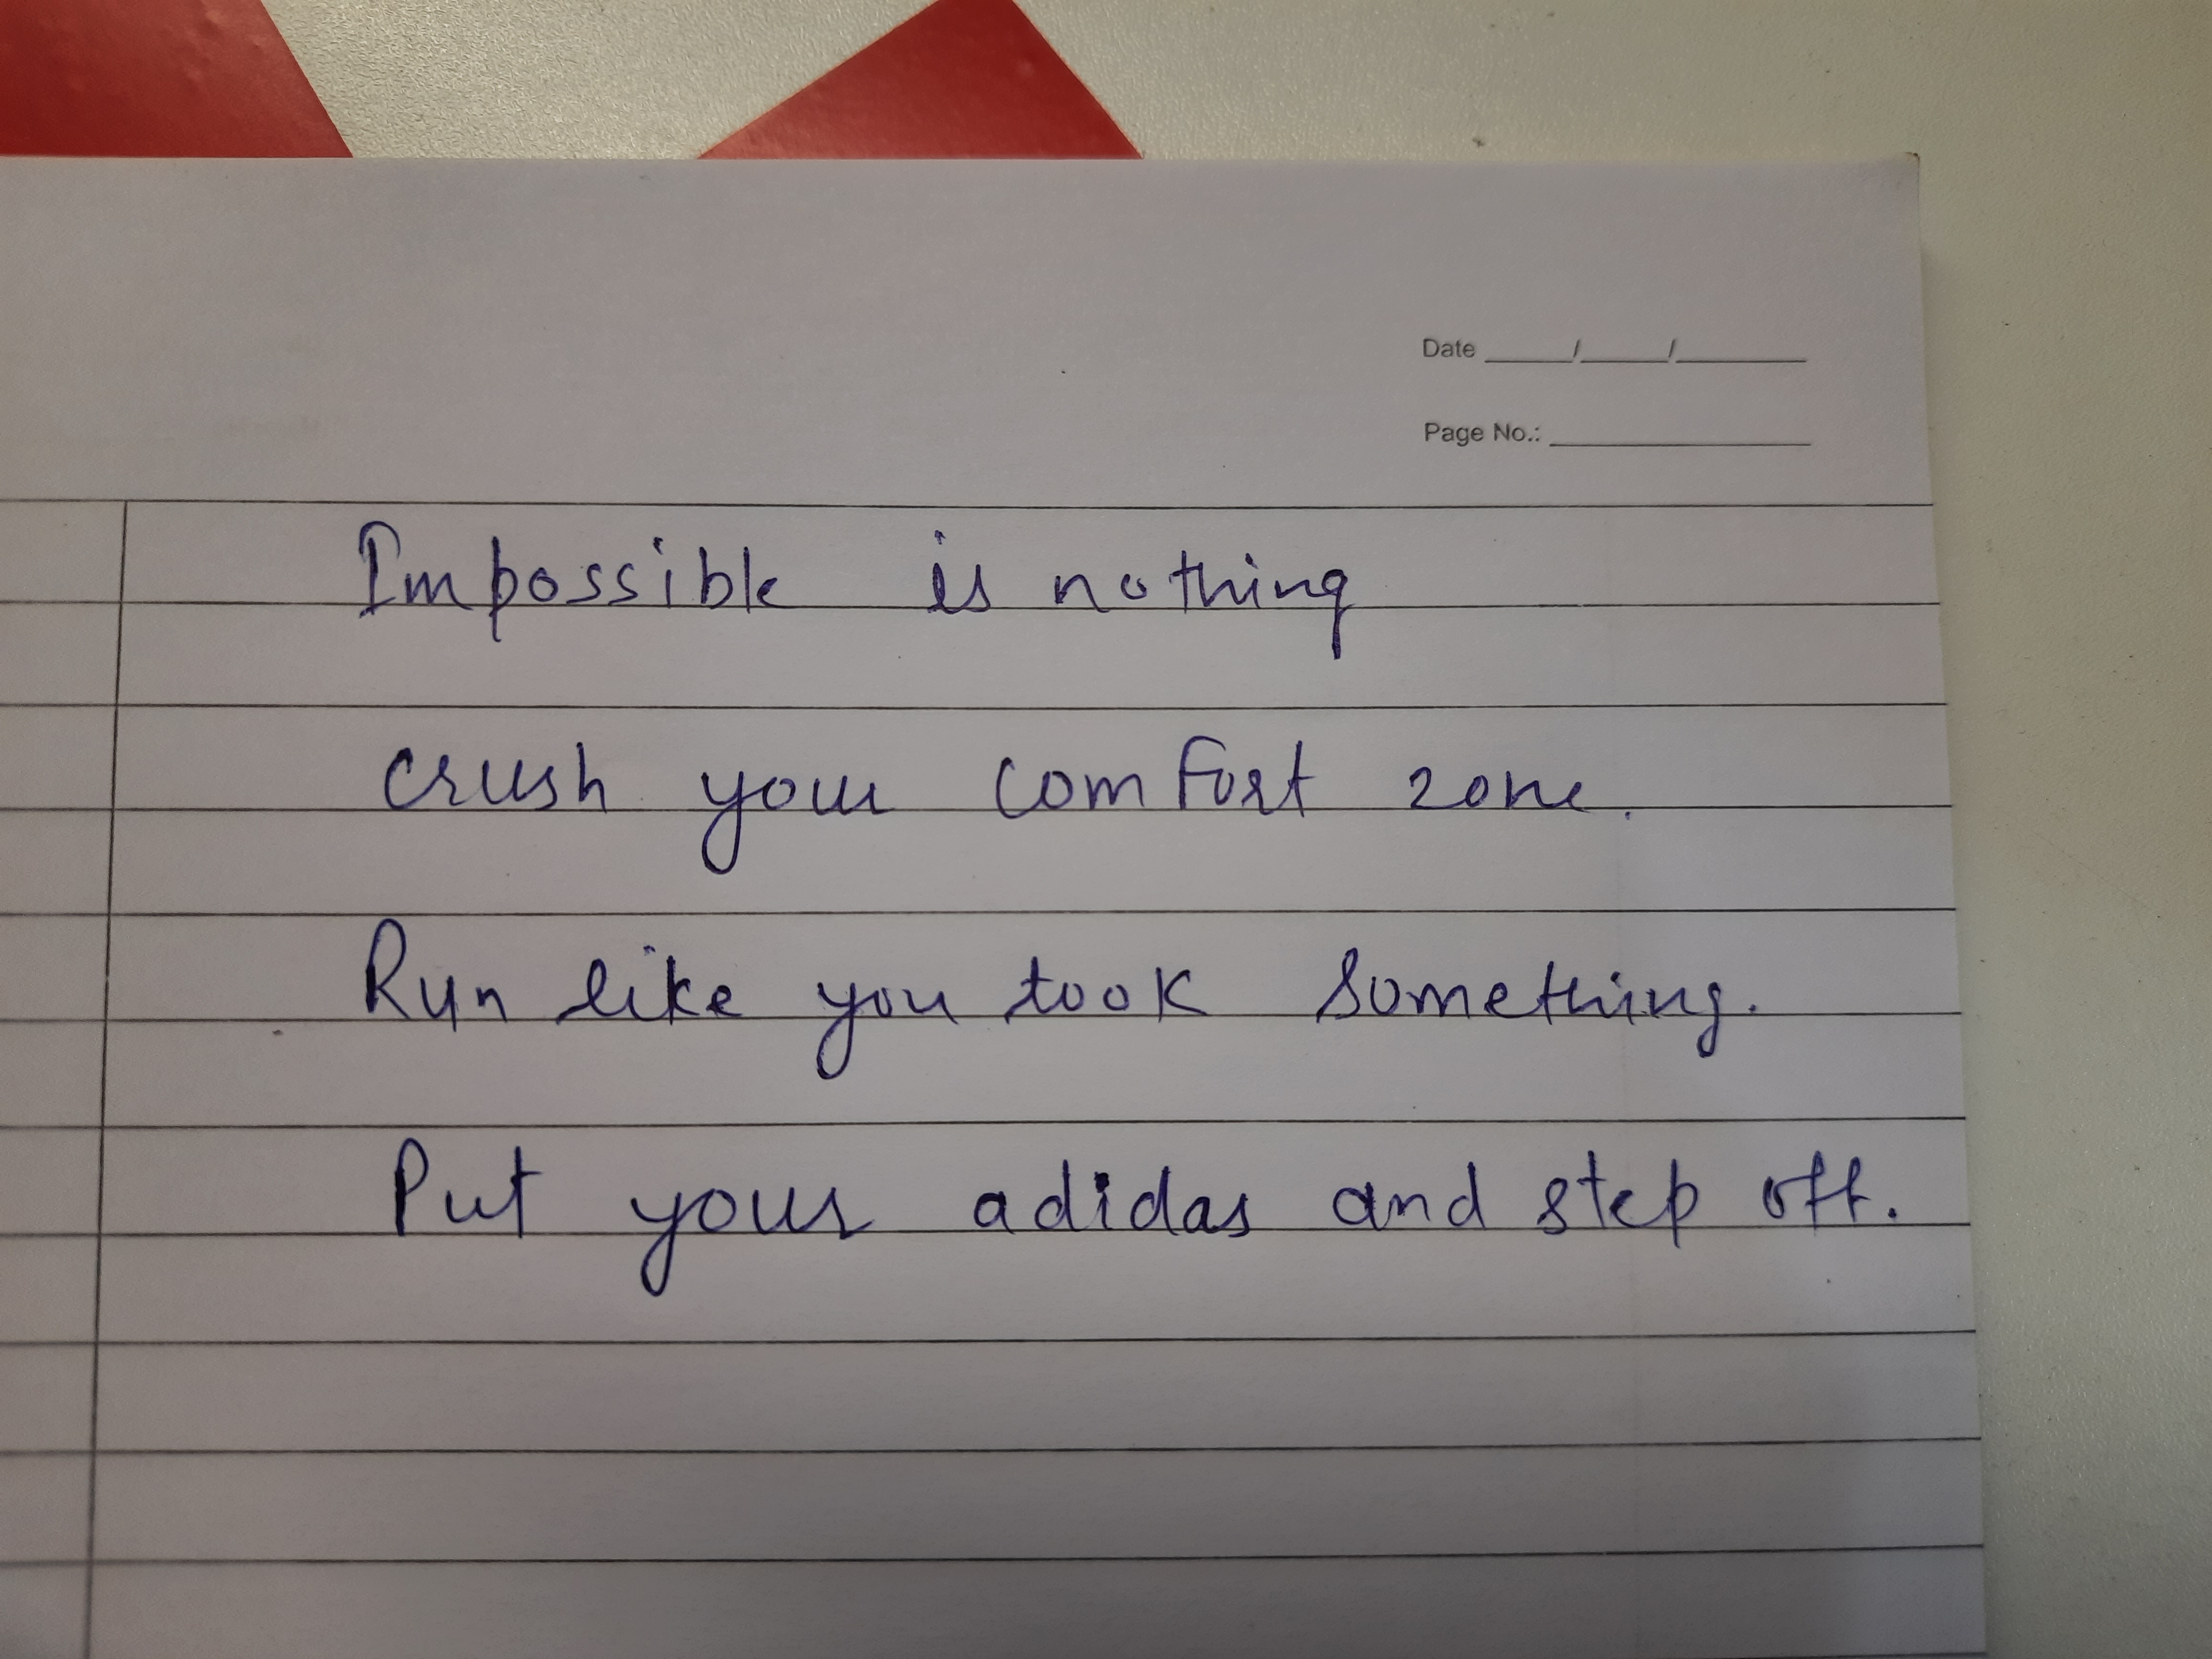 Date ____/____/______
Page No.: ____________
Impossible is nothing
crush your comfort zone.
Run like you took something.
Put your adidas and step off.